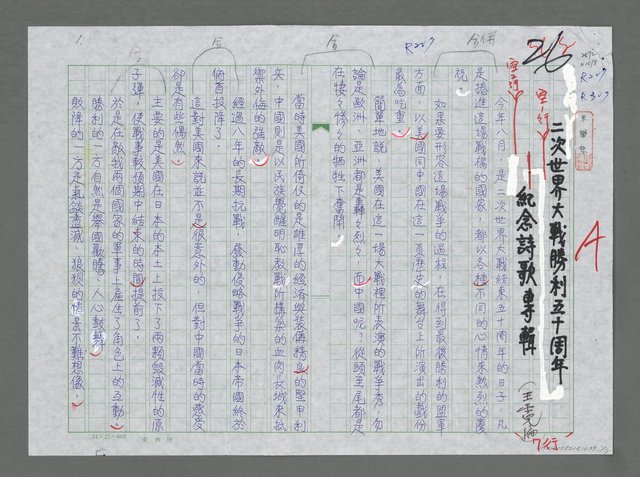 二次世界大戰勝利五十周年
紀念詩歌專輯
今年八月，是二次世界大戰結束五十周年的日子，凡
是捲進這場戰禍的國家，都以各種不同的心情來熱烈的慶
祝。
如果要形容這場戰爭的過程，在得到最後勝利的盟軍
方面，以美國同中國在這一頁歷史的舞台上所演出的戲份
最為吃重。
簡單地說，美國在這一場大戰裡所表演的戰爭秀，勿
論是歐洲、亞洲都是轟轟烈烈，而中國呢？從頭至尾都是
在悽悽慘慘的犧牲下奮鬥。
當時美國所倚仗的是雄厚的經濟與裝備精良的堅甲利
兵，中國則是以民族覺醒明恥教戰所構築的血肉長城來抵
禦外侮的強敵。
經過八年的長期抗戰，發動侵略戰爭的日本帝國終於
俯首投降了。
這對美國來說並不是很意外的，但對中國當時的感受
卻是有些偶然。
主要的是美國在日本的本土上投下了兩顆毀滅性的原
子彈，使戰事較預期中結束的時間提前了。
於是在敵我兩個國家的軍事上產生了角色上的互動，
勝利的一方自然是舉國歡騰、人心鼓舞，
敗降的一方是氣燄盡滅，狼狽的情景不難想像。
合併
合
合
合
空一行
7行
A
26
R207
1.
24×25=600